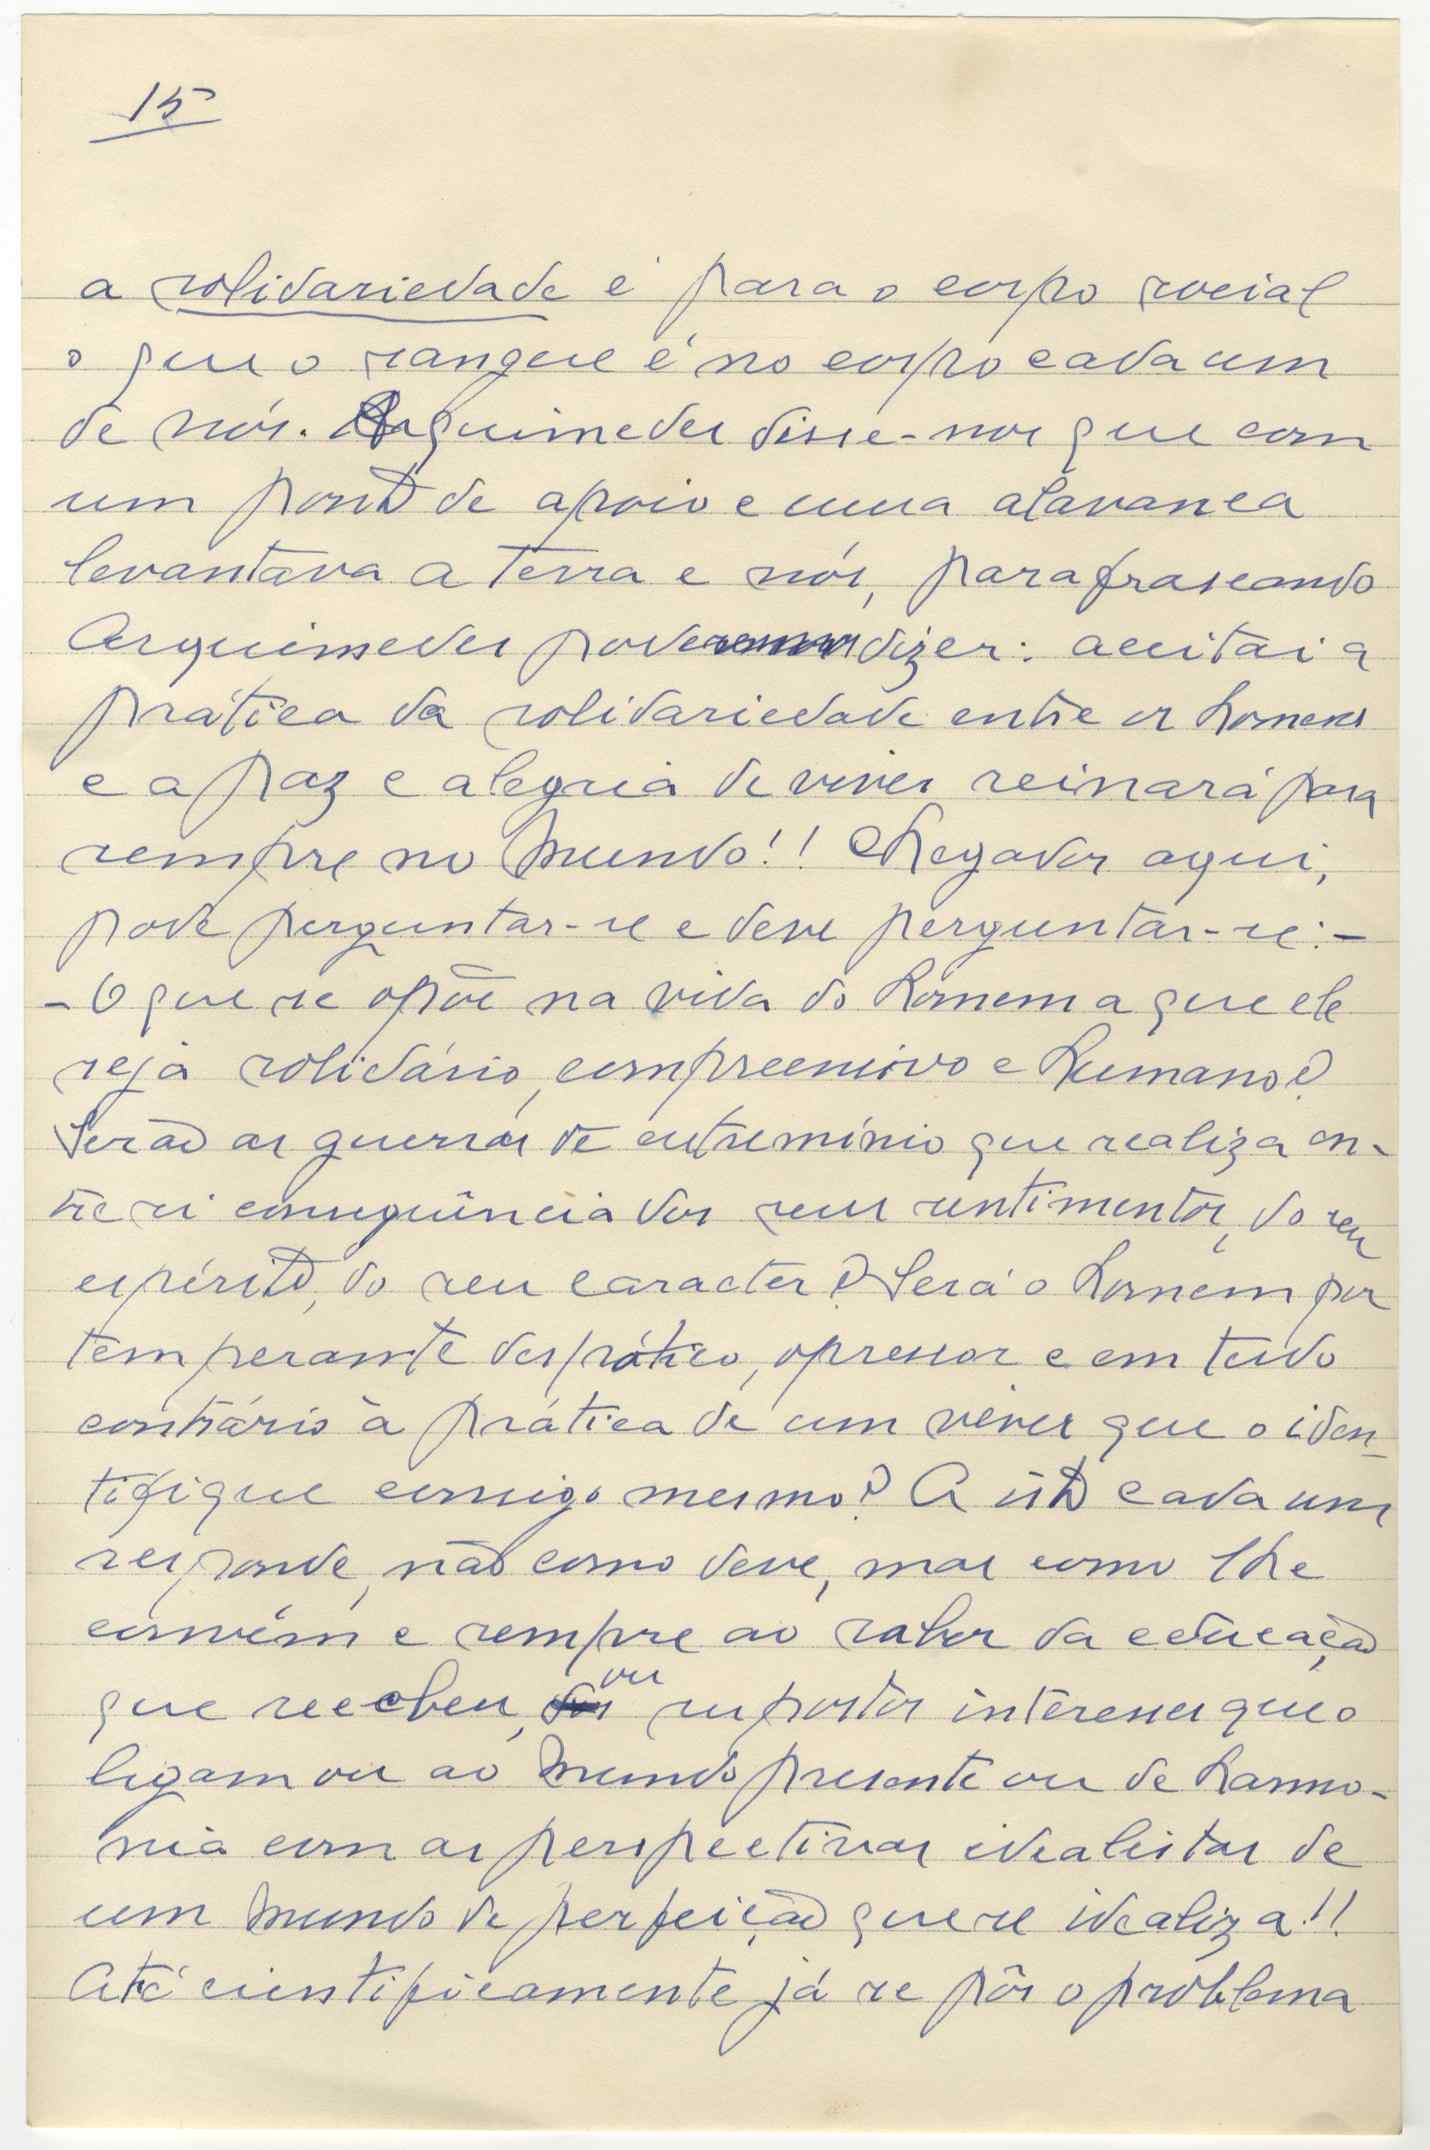 15
a solidariedade é para o corpo social
o que o sangue é no corpo cada um
de nós. Arquimedes disse-nos que com
um ponto de apoio e uma alavanca
levantava a terra e nós, parafraseando
Arquimedes poderemos dizer: aceitai a
prática da solidariedade entre os homens
e a paz e alegria de viver reinará para
sempre no Mundo!! Chegados aqui,
pode perguntar-se e deve perguntar-se:-
- O que se opõe na vida do homem a que ele
seja solidário, compreensivo e humano?
Serão as guerras de extremínio que realiza en-
tre si consequência dos seus sentimentos, do seu
espírito, do seu caracter? Será o homem por
temperamte despótico, opressor e em tudo
contrário à prática de um viver que o iden-
tifique consigo mesmo? A isto cada um
responde, não como deve, mas como lhe
convém e sempre ao sabor da educação
que recebeu, ou supostos interesses que o
ligam ou ao Mundo presente ou de harmo-
nia com as perspectivas idealistas de
um Mundo de perfeição que se idealiza!!
Até cientificamente já se pôs o problema